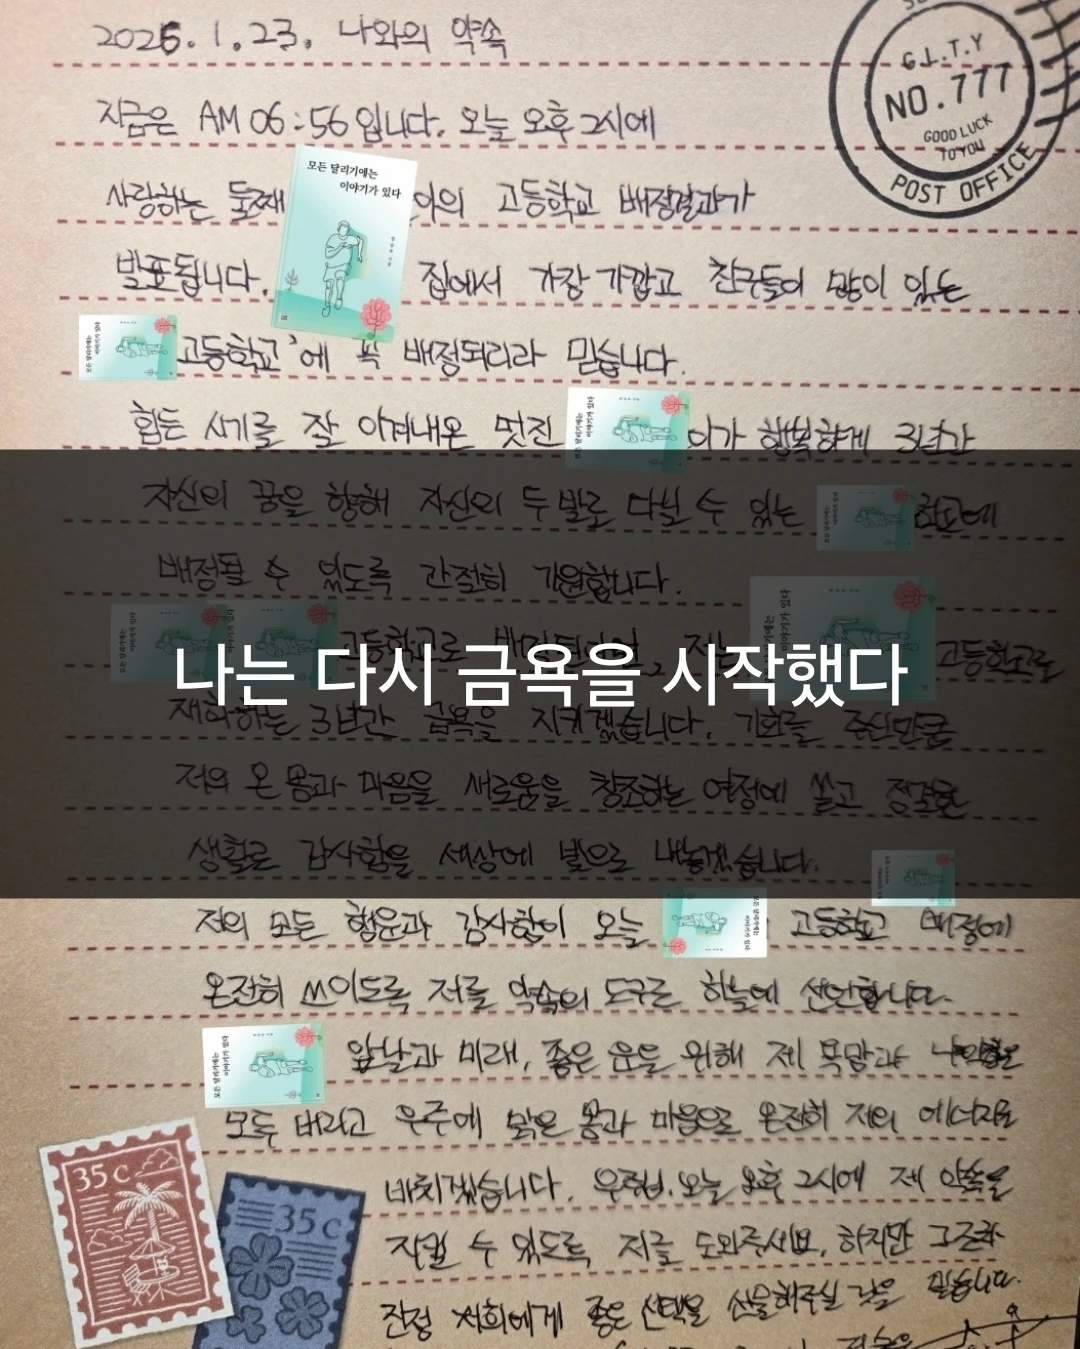 2025.1.23. 나와의 약속
지금은 AM 06:56입니다. 오늘 오후 2시에
사랑하는 둘째 아의 고등학교 배정결과가
발표됩니다. 집에서 가장 가깝고 친구들이 많이 있는
고등학교'에 꼭 배정되리라 믿습니다.
힘든 시기를 잘 이겨내온 멋진 이가 행복하게 3년간
자신의 꿈을 향해 자신의 두 발로 다닐 수 있는 학교에
배정될 수 있도록 간절히 기원합니다.
고등학교로 저는 고등학교를
나는 다시 금욕을 시작했다
재학하는 3년간 금욕을 지키겠습니다. 기회를 주신만큼
저의 온 몸과 마음을 새로움을 창조하는 여정에 쏟고 정결한
생활로 감사함을 세상에 빛으로 내놓겠습니다.
저의 모든 행운과 감사함이 오늘 고등학교 배정에
온전히 쓰이도록 저를 약속의 도구로 하늘에 선언합니다.
앞날과 미래, 좋은 운을 위해 제 욕망과
모두 버리고 우주에 맑은 몸과 마음으로 온전히 저의 에너지를
바치겠습니다. 오늘 오후 2시에 제 약속을
지킬 수 있도록 저를 도와주세요. 하지만 그 결과
진정 저희에게 좋은 선택을 선물해주실 것을 믿습니다.
모든 달리기에는
이야기가 있다
G.L.T.Y
NO.777
GOOD LUCK
TO YOU
POST OFFICE
35c
35c